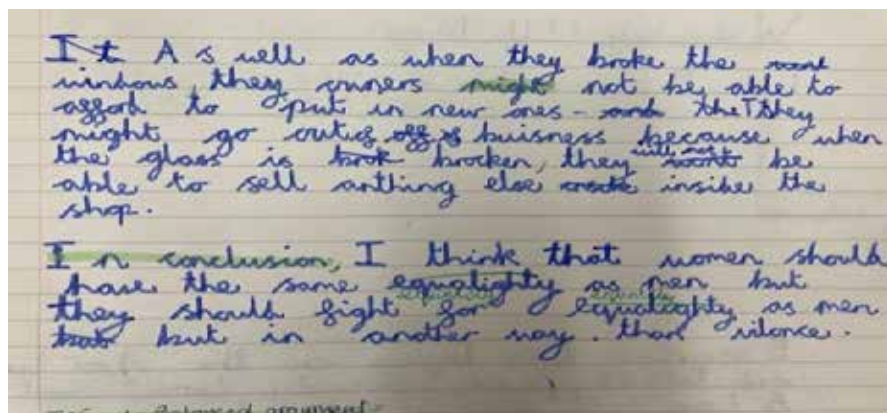 As well as when they broke the
windous, they owners might not be able to
afford to put in new ones - the they
might go out of buisness because when
the glass is broken, they will not be
able to sell anthing else inside the
shop.
In conclusion, I think that women should
have the same equalighty as men but
they should fight for equalighty as men
but in another way. than vilonce.
Balanced argument